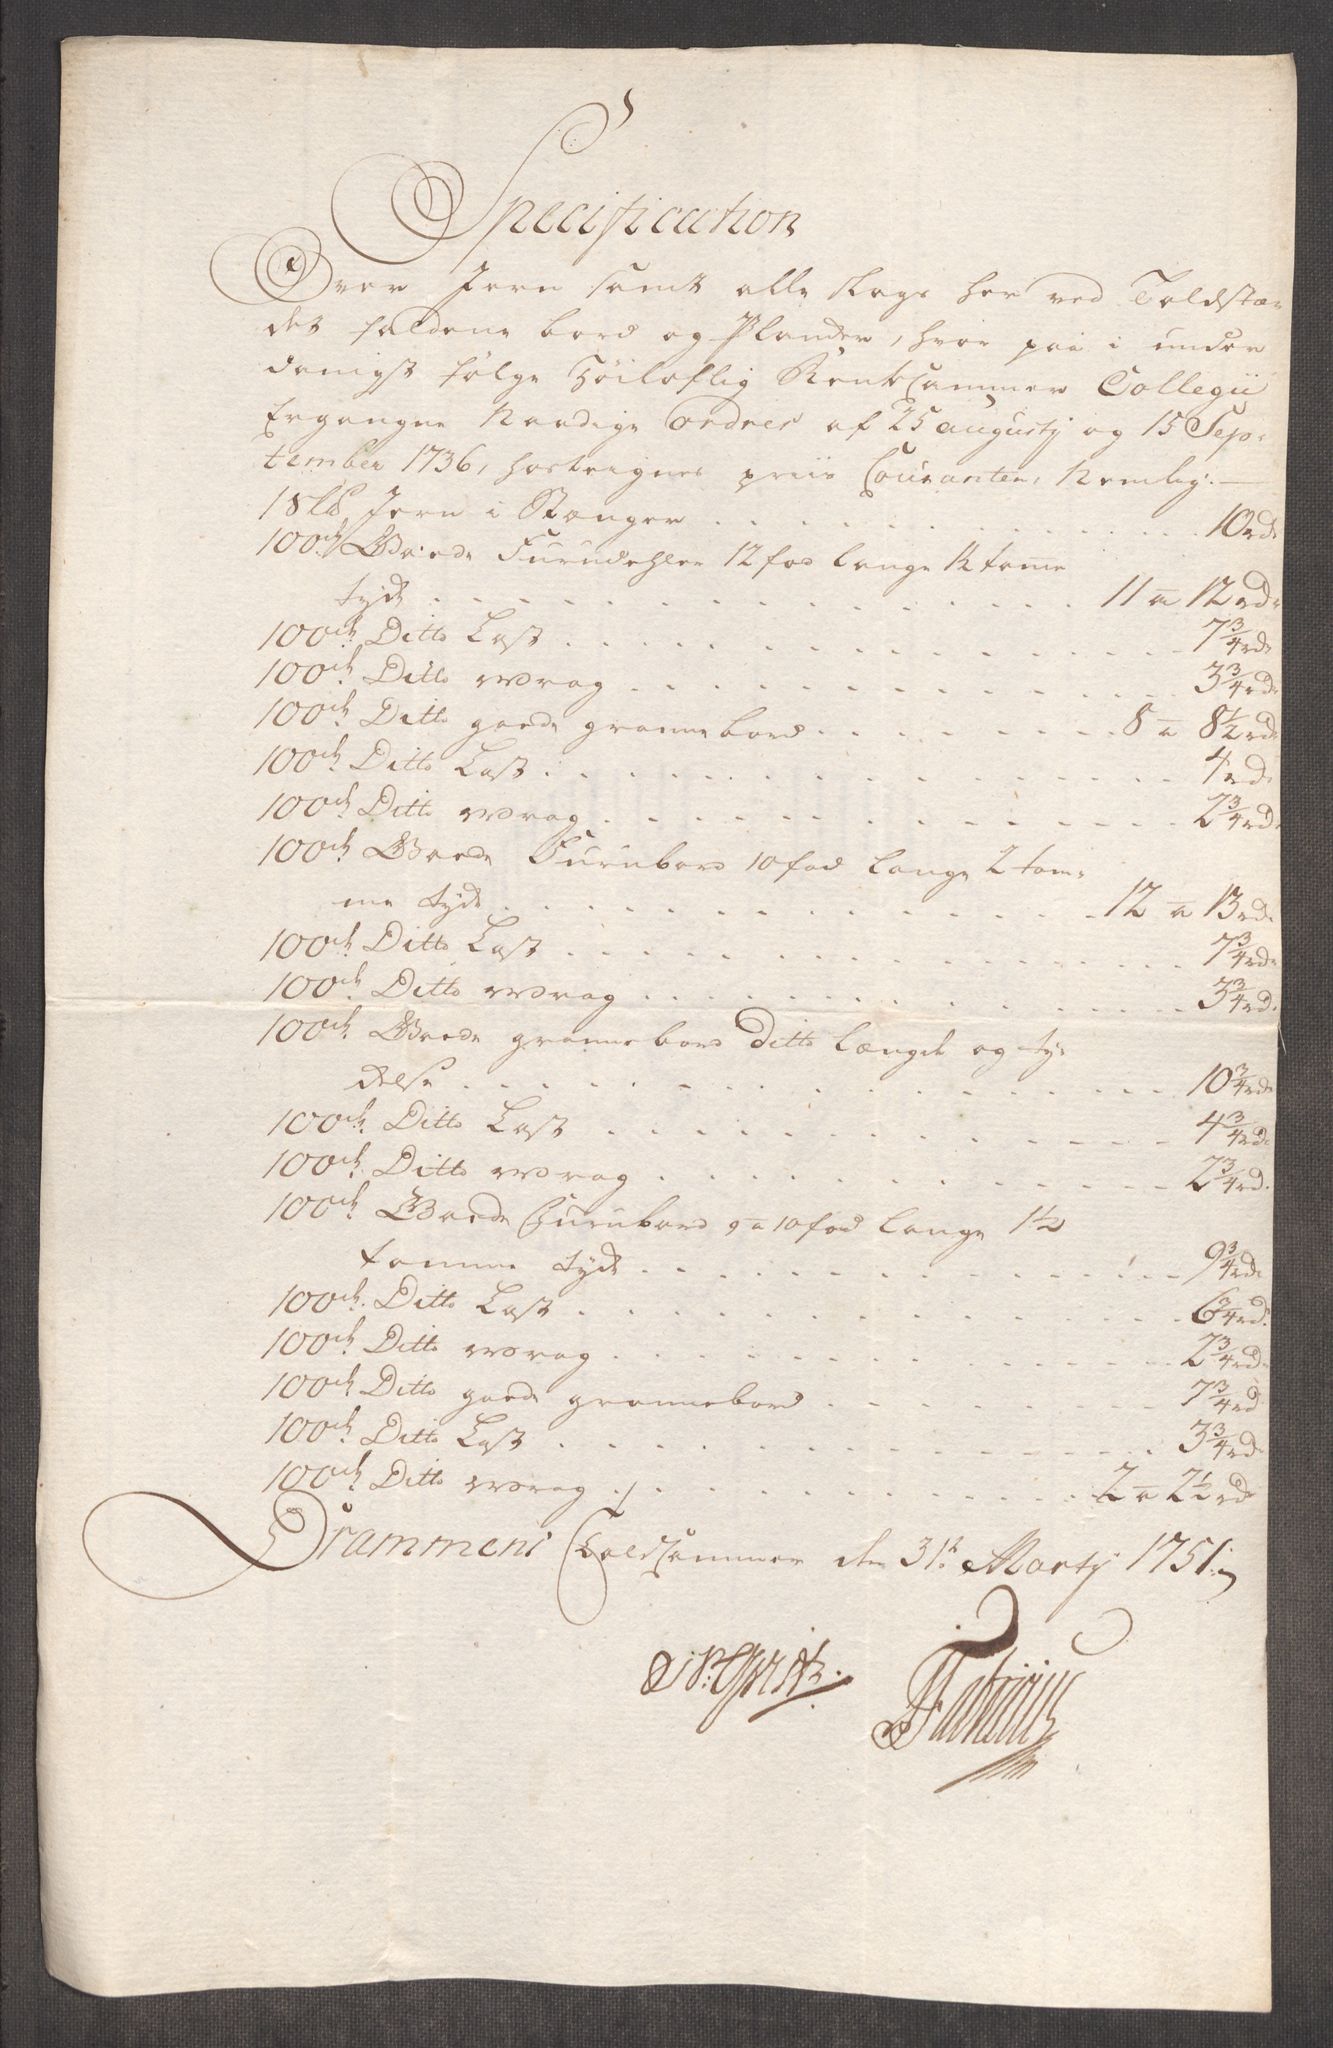 Specification
Over Jern samt alle slags her ved Toldstæ=
det faldene bord og Plancker, hvor paa i under
danigst følge Höiloflig RentCammer Collegii
Ergangne Naadige Ordres af 25 augustj og 15 Sep=
tember 1736, hosteignes priis Couranten, Nemlig:
1 Jern i Stænger 10 rd
100de Goede Furudehler 12 fod lange tomme
tyck 11 a 12 rd
100de Ditto Last 7 3/4 rd
100de Ditto wrag 3 3/4 rd
100de Ditto goede grannebord 8 a 8 1/2 rd
100de Ditto Last 4 rd
100de Ditto wrag 2 3/4 rd
100de Goede Furubord 10 fod lange 2 tom=
me tyck 12 a 13 rd
100de Ditto Last 7 3/4 rd
100de Ditto wrag 3 3/4 rd
100de Goede grannebord ditto længde og ty=
delse 10 3/4 rd
100de Ditto Last 4 3/4 rd
100de Ditto wrag 2 3/4 rd
100de Goede Furubord 9 a 10 fod lange 1 1/2
tomme tyck 9 3/4 rd
100de Ditto Last 6 3/4 rd
100de Ditto wrag 2 3/4 rd
100de Ditto goede grannebord 7 3/4 rd
100de Ditto Last 3 3/4 rd
100de Ditto wrag 2 a 2 1/2 rd
Drammens ToldCammer den 31te Martj 1751
Fabricius